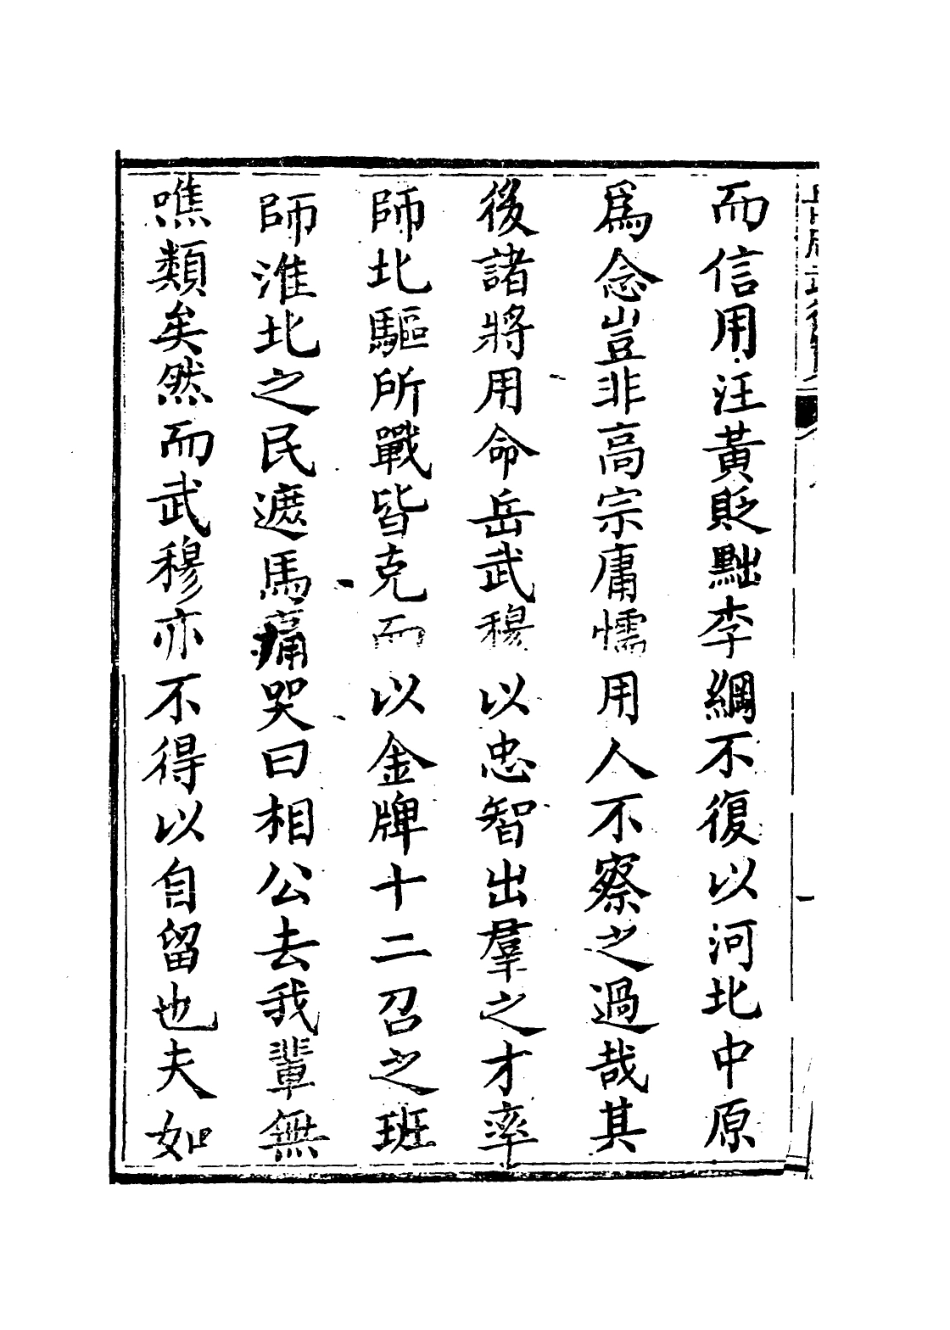 而信用汪黃貶黜李綱不復以河北中原
爲念豈非高宗庸懦用人不察之過哉其
後諸將用命岳武穆以忠智出羣之才率
師北驅所戰皆克而以金牌十二召之班
師淮北之民遮馬痛哭曰相公去我輩無
噍類矣然而武穆亦不得以自留也夫如